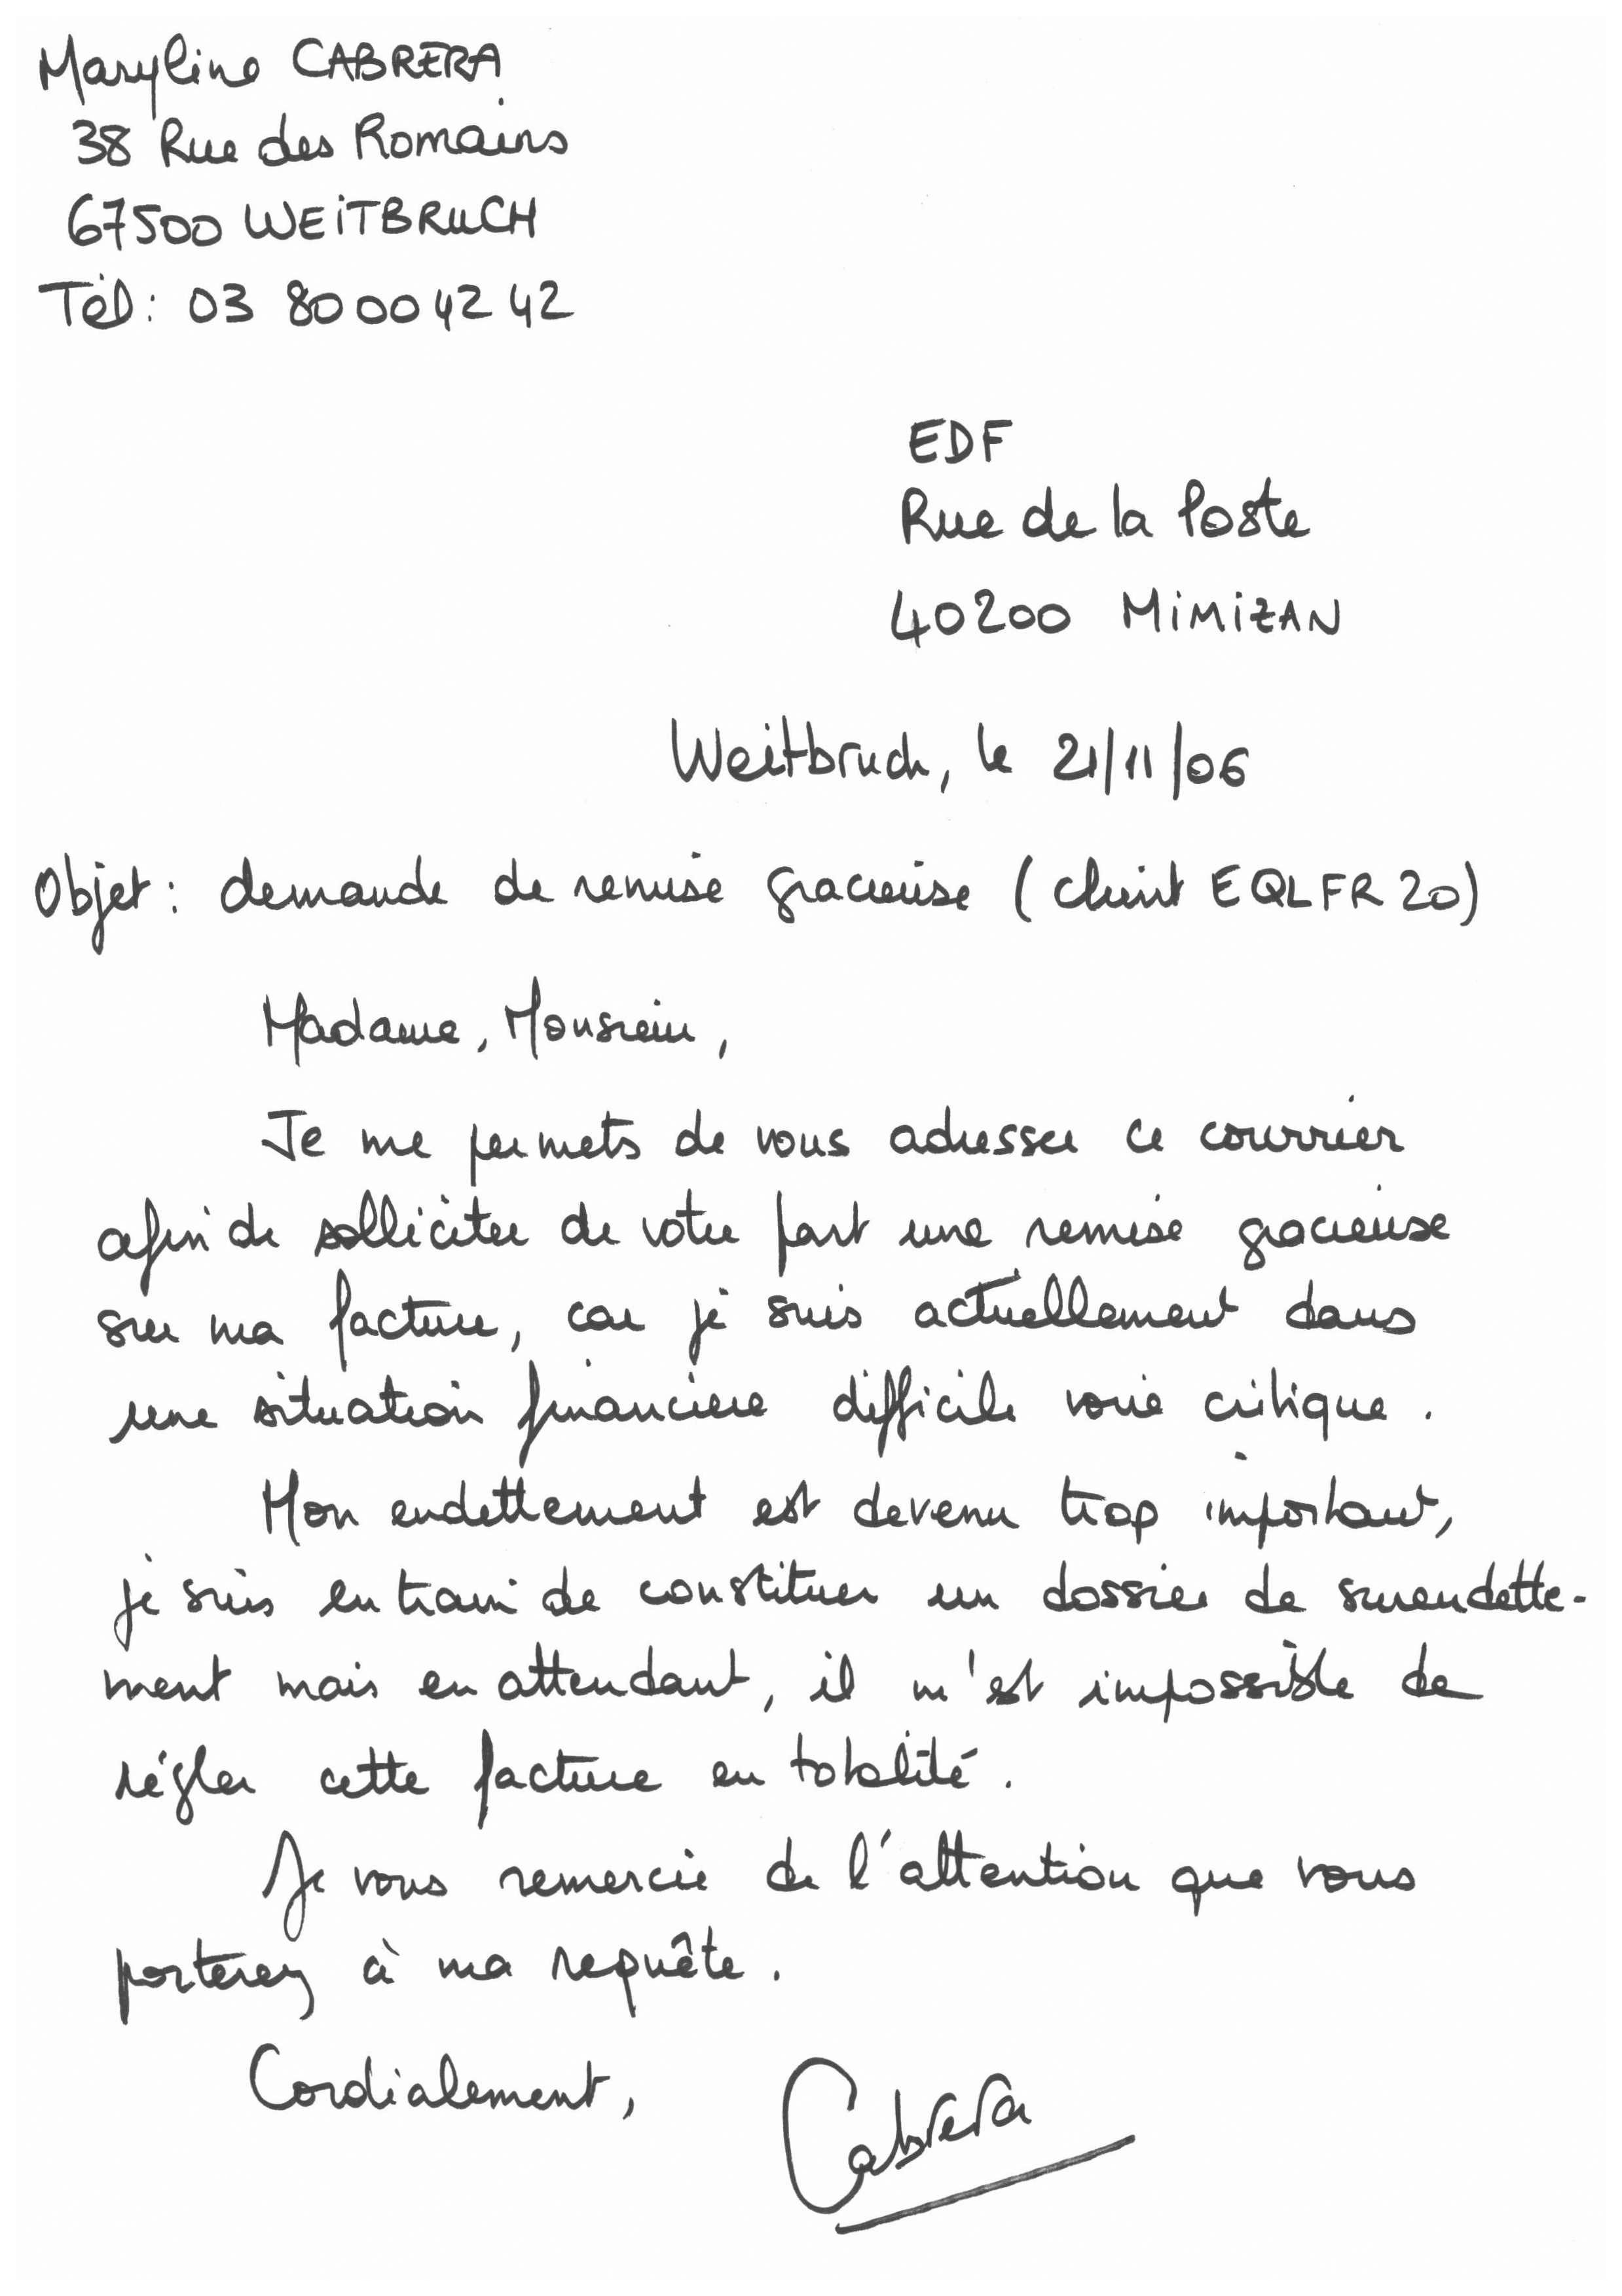 Maryline CABRERA
38 Rue des Romains
67500 WEITBRUCH
Tél : 03 80 00 42 42
EDF
Rue de la Poste
40200 MIMIZAN
Weitbruch, le 21/11/06
Objet : demande de remise gracieuse (client EQLFR20)
Madame, Monsieur,
Je me permets de vous adresser ce courrier
afin de solliciter de votre part une remise gracieuse
sur ma facture, car je suis actuellement dans
une situation financière difficile voire critique.
Mon endettement est devenu trop important,
je suis en train de constituer un dossier de surendette-
ment mais en attendant, il m'est impossible de
régler cette facture en totalité.
Je vous remercie de l'attention que vous
porterez à ma requête.
Cordialement,
Cabrera